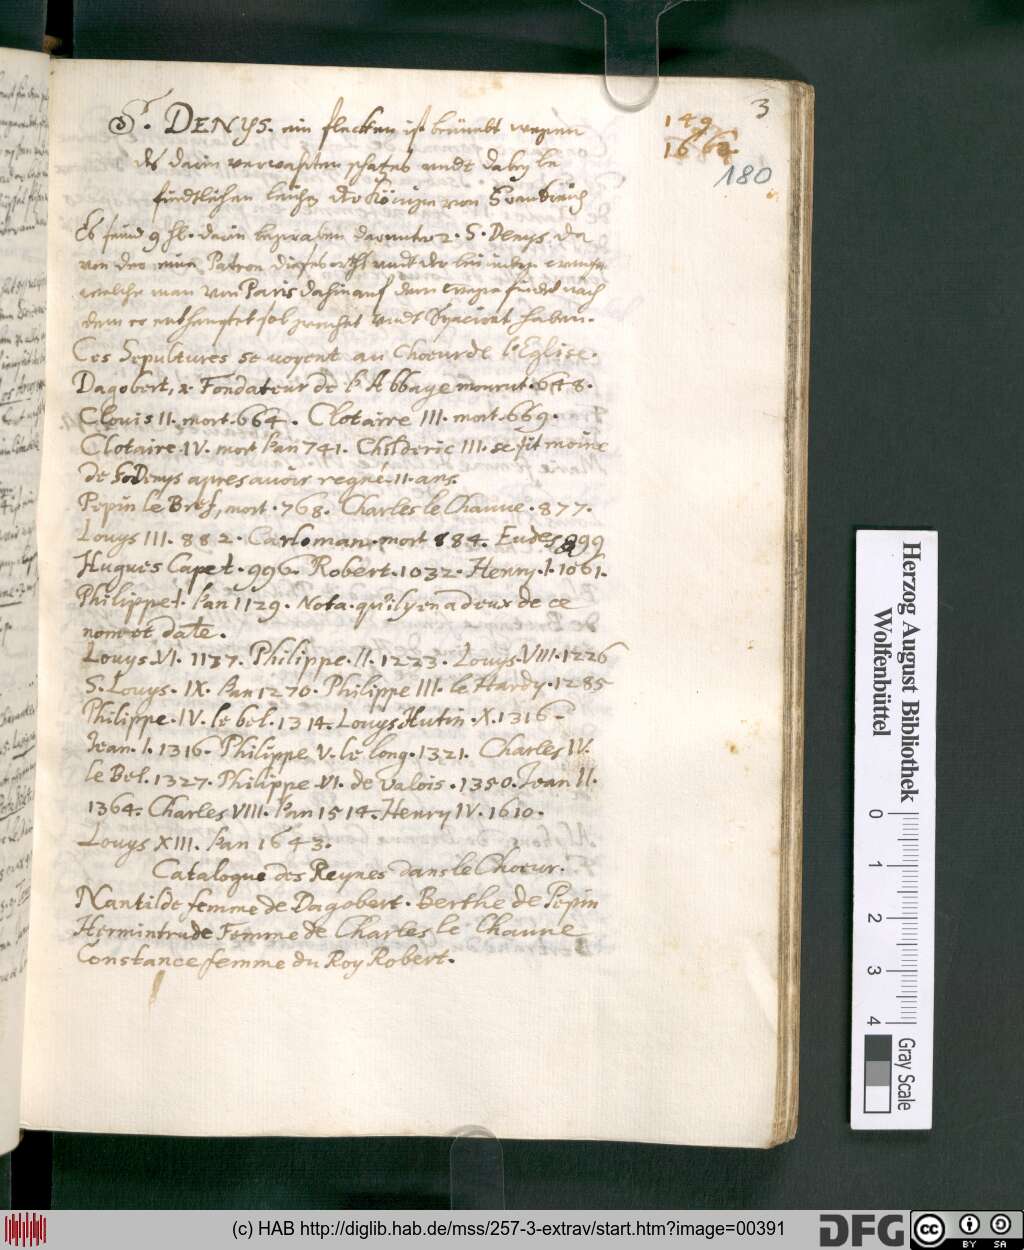 3
149
1662.
180
St. DENYS. ein flecken ist berümbt wegen
des darin verwahrten schatzes undt dabey be
findtlichen leichen der Königen von Franckreich
Es seind 9 hl. darin begraben darunter 2. S. Denys da
von der eine Patron dieses orths undt der
welche man von Paris dahin auf dem wege findet nach
dem er enthauptet sol geruhet undt haben.
Ces Sepultures se voyent au Choeur de l'Eglise.
Dagobert, 1. Fondateur de l'Abbaye mourut. 648.
Clouis II. mort. 664. Clotaire III. mort. 669.
Clotaire IV. mort l'an 741. Childeric III. se fit moine
de S. Denys apres avoir regné 11 ans.
Pepin le Bref, mort. 768. Charles le Chauue. 877.
Louys III. 882. Carloman. mort 884. Eudes 899
Hugues Capet. 996. Robert. 1032. Henry. I. 1061.
Philippe I. l'an 1129. Nota. qu'il y en a deux de ce
nom et date.
Louys. VI. 1137. Philippe. II. 1223. Louys. VIII. 1226
S. Louys. IX. l'an 1270. Philippe III. le Hardy. 1285
Philippe. IV. le bel. 1314. Louys Hutin. X. 1316.
Jean. I. 1316. Philippe V. le long. 1321. Charles IV.
le Bel. 1327. Philippe. VI. de Valois. 1350. Jean II.
1364. Charles VIII. l'an 1514. Henry IV. 1610.
Louys XIII. l'an 1643.
Catalogue des Reynes dans le Choeur.
Nantilde femme de Dagobert. Berthe de Pepin
Hermintrude Femme de Charles le Chauue
Constance femme du Roy Robert.
Herzog August Bibliothek
Wolfenbüttel
0 1 2 3 4
Gray Scale
(c) HAB http://diglib.hab.de/mss/257-3-extrav/start.htm?image=00391
DFG
cc BY SA